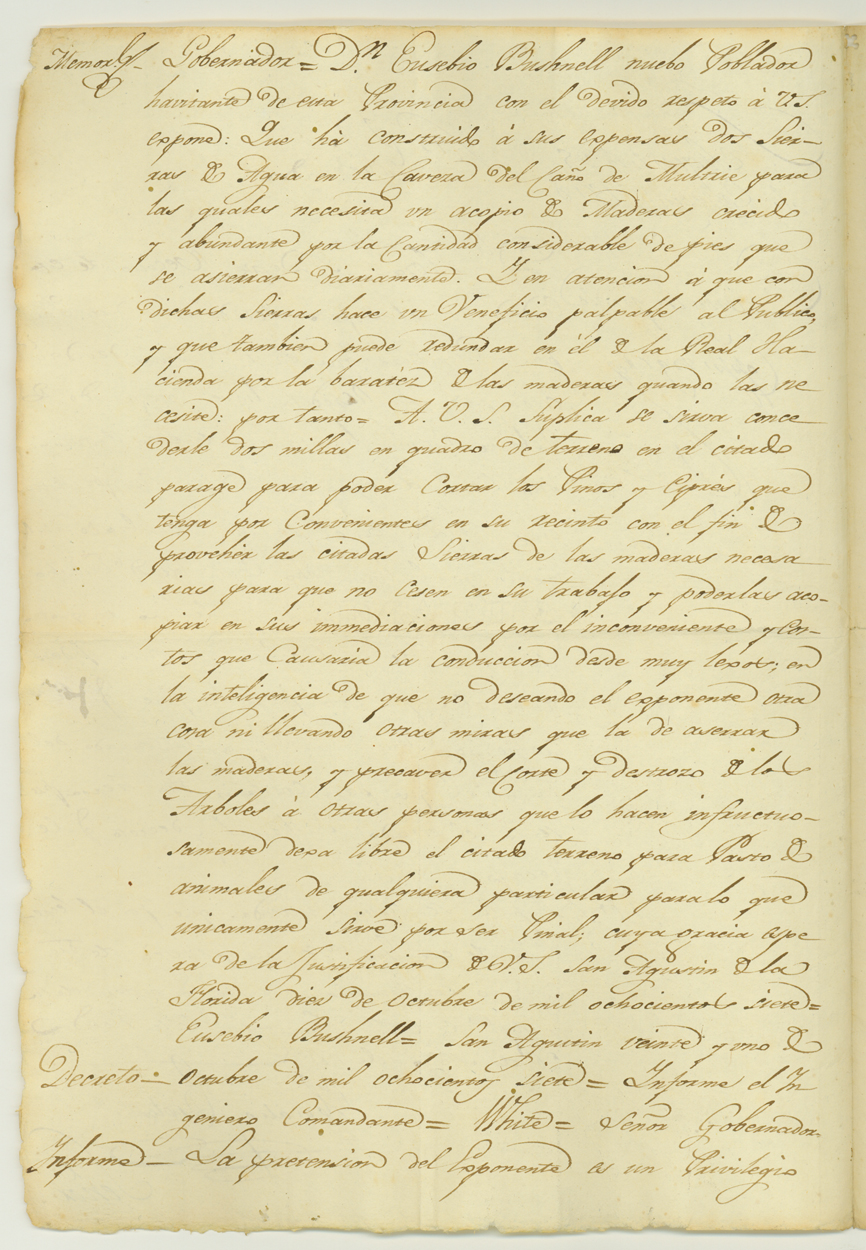 Memorl. Sr. Gobernador = Dn. Eusebio Bushnell nuebo Poblador
havitante de esta Provincia con el devido respeto à V.S.
expone: Que hà construido á sus expensas dos Sier-
ras de Agua en la Cavera del Caño de Multrie para
las quales necesita un acopio de Maderas crecido
y abundante por la Cantidad considerable de pies que
se asierran diariamente. Y en atencion á que con
dichas Sierras hace un Veneficio palpable al Publico,
y que tambien puede redundar en él de la Real Ha-
cienda por la baratéz de las maderas quando las ne
cesite: por tanto = A. V. S. Suplica se sirva conce
derle dos millas en quadro de terreno en el citado
parage para poder Cortar los Pinos y Ciprés que
tenga por Convenientes en su recinto con el fin de
provehér las citadas Sierras de las maderas necesa
rias para que no cesen en su trabajo y poderlas aco-
piar en sus immediaciones por el inconveniente y cos-
tos que Causaria la conduccion desde muy lexos; en
la inteligencia de que no deseando el exponente otra
cosa ni llevando otras miras que la de aserrar
las maderas, y precaver el Corte y destrozo de los
Arboles à otras personas que lo hacen infructuo-
samente dexa libre el citado terreno para Pasto de
animales de qualquiera particular para lo que
unicamente sirve por ser Pinal; cuya gracia espe
ra de la Justificacion de V.S. San Agustin de la
Florida diez de Octubre de mil ochocientos siete =
Eusebio Bushnell = San Agustin veinte y uno de
Decreto - Octubre de mil ochocientos siete = Informe el In
geniero Comandante = White = Señor Gobernador
Informe - La pretension del Exponente es un Privilegio